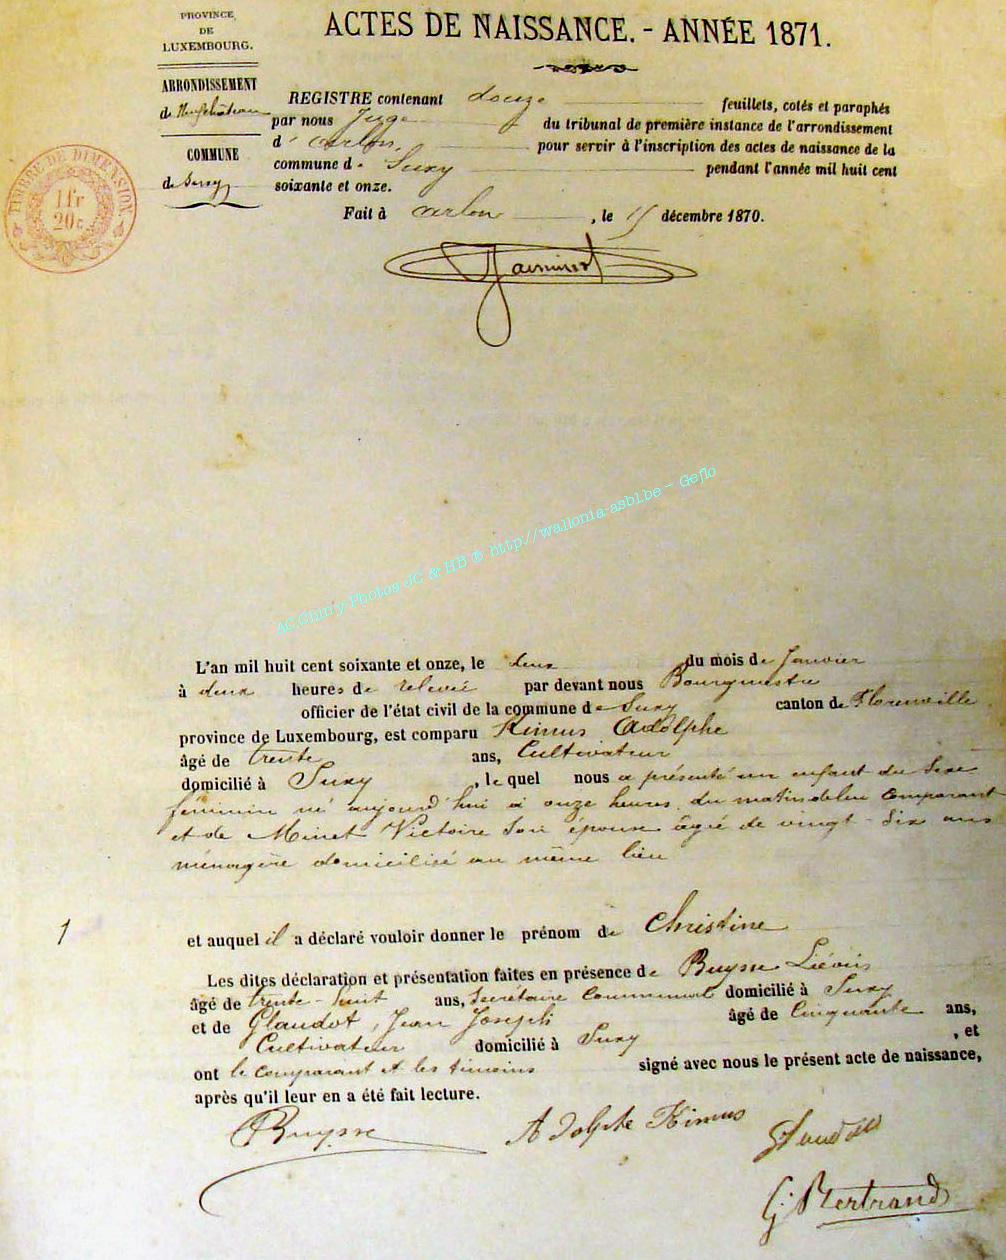 PROVINCE
DE
LUXEMBOURG.
ARRONDISSEMENT
de Neufchâteau
COMMUNE
de Suxy
TIMBRE DE DIMENSION
1 fr
20 c.
ACTES DE NAISSANCE. - ANNÉE 1871.
REGISTRE contenant douze feuillets, cotés et paraphés
par nous Juge du tribunal de première instance de l'arrondissement
d' Arlon, pour servir à l'inscription des actes de naissance de la
commune de Suxy pendant l'année mil huit cent
soixante et onze.
Fait à Arlon, le 15 décembre 1870.
AC.Chiny-Photos JC & HB © http://wallonia-asbl.be - Geflo
L'an mil huit cent soixante et onze, le deux du mois de Janvier
à deux heures de relevée par devant nous Bourgmestre
officier de l'état civil de la commune de Suxy canton de Florenville
province de Luxembourg, est comparu Kimus Adolphe
âgé de trente ans, Cultivateur
domicilié à Suxy, le quel nous a présenté un enfant du sexe
féminin né aujourd'hui à onze heures du matin de lui comparant
et de Minet Victoire son épouse âgé de vingt-six ans
ménagère domicilisé au même lieu
1
et auquel il a déclaré vouloir donner le prénom de Christine
Les dites déclaration et présentation faites en présence de Buysse Liévin
âgé de trente-huit ans, Secrétaire Communal domicilié à Suxy
et de Glaudot, Jean Joseph âgé de Cinquante ans,
Cultivateur domicilié à Suxy, et
ont le comparant et les témoins signé avec nous le présent acte de naissance,
après qu'il leur en a été fait lecture.
Buysse
Adolphe Kimus
Glaudot
G. Bertrand